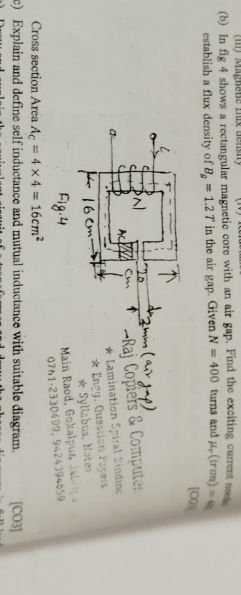 (b) In fig 4 shows a rectangular magnetic core with an air gap. Find the exciting current
establish a flux density of B_g = 1.2 T in the air gap. Given N = 400 turns and μ_r (iron) =
[CO3]
i
N
Ac
2mm (air gap)
20
cm
16 cm
Fig.4
Raj Copiers & Computer
* Lamination Spiral Binding
* Engg. Question Papers
* Syllabus, Notes
Main Raod, Gokalpur,
0761-2330499, 9424394659
Cross section Area A_C = 4 × 4 = 16cm²
c) Explain and define self inductance and mutual inductance with suitable diagram.
[CO3]